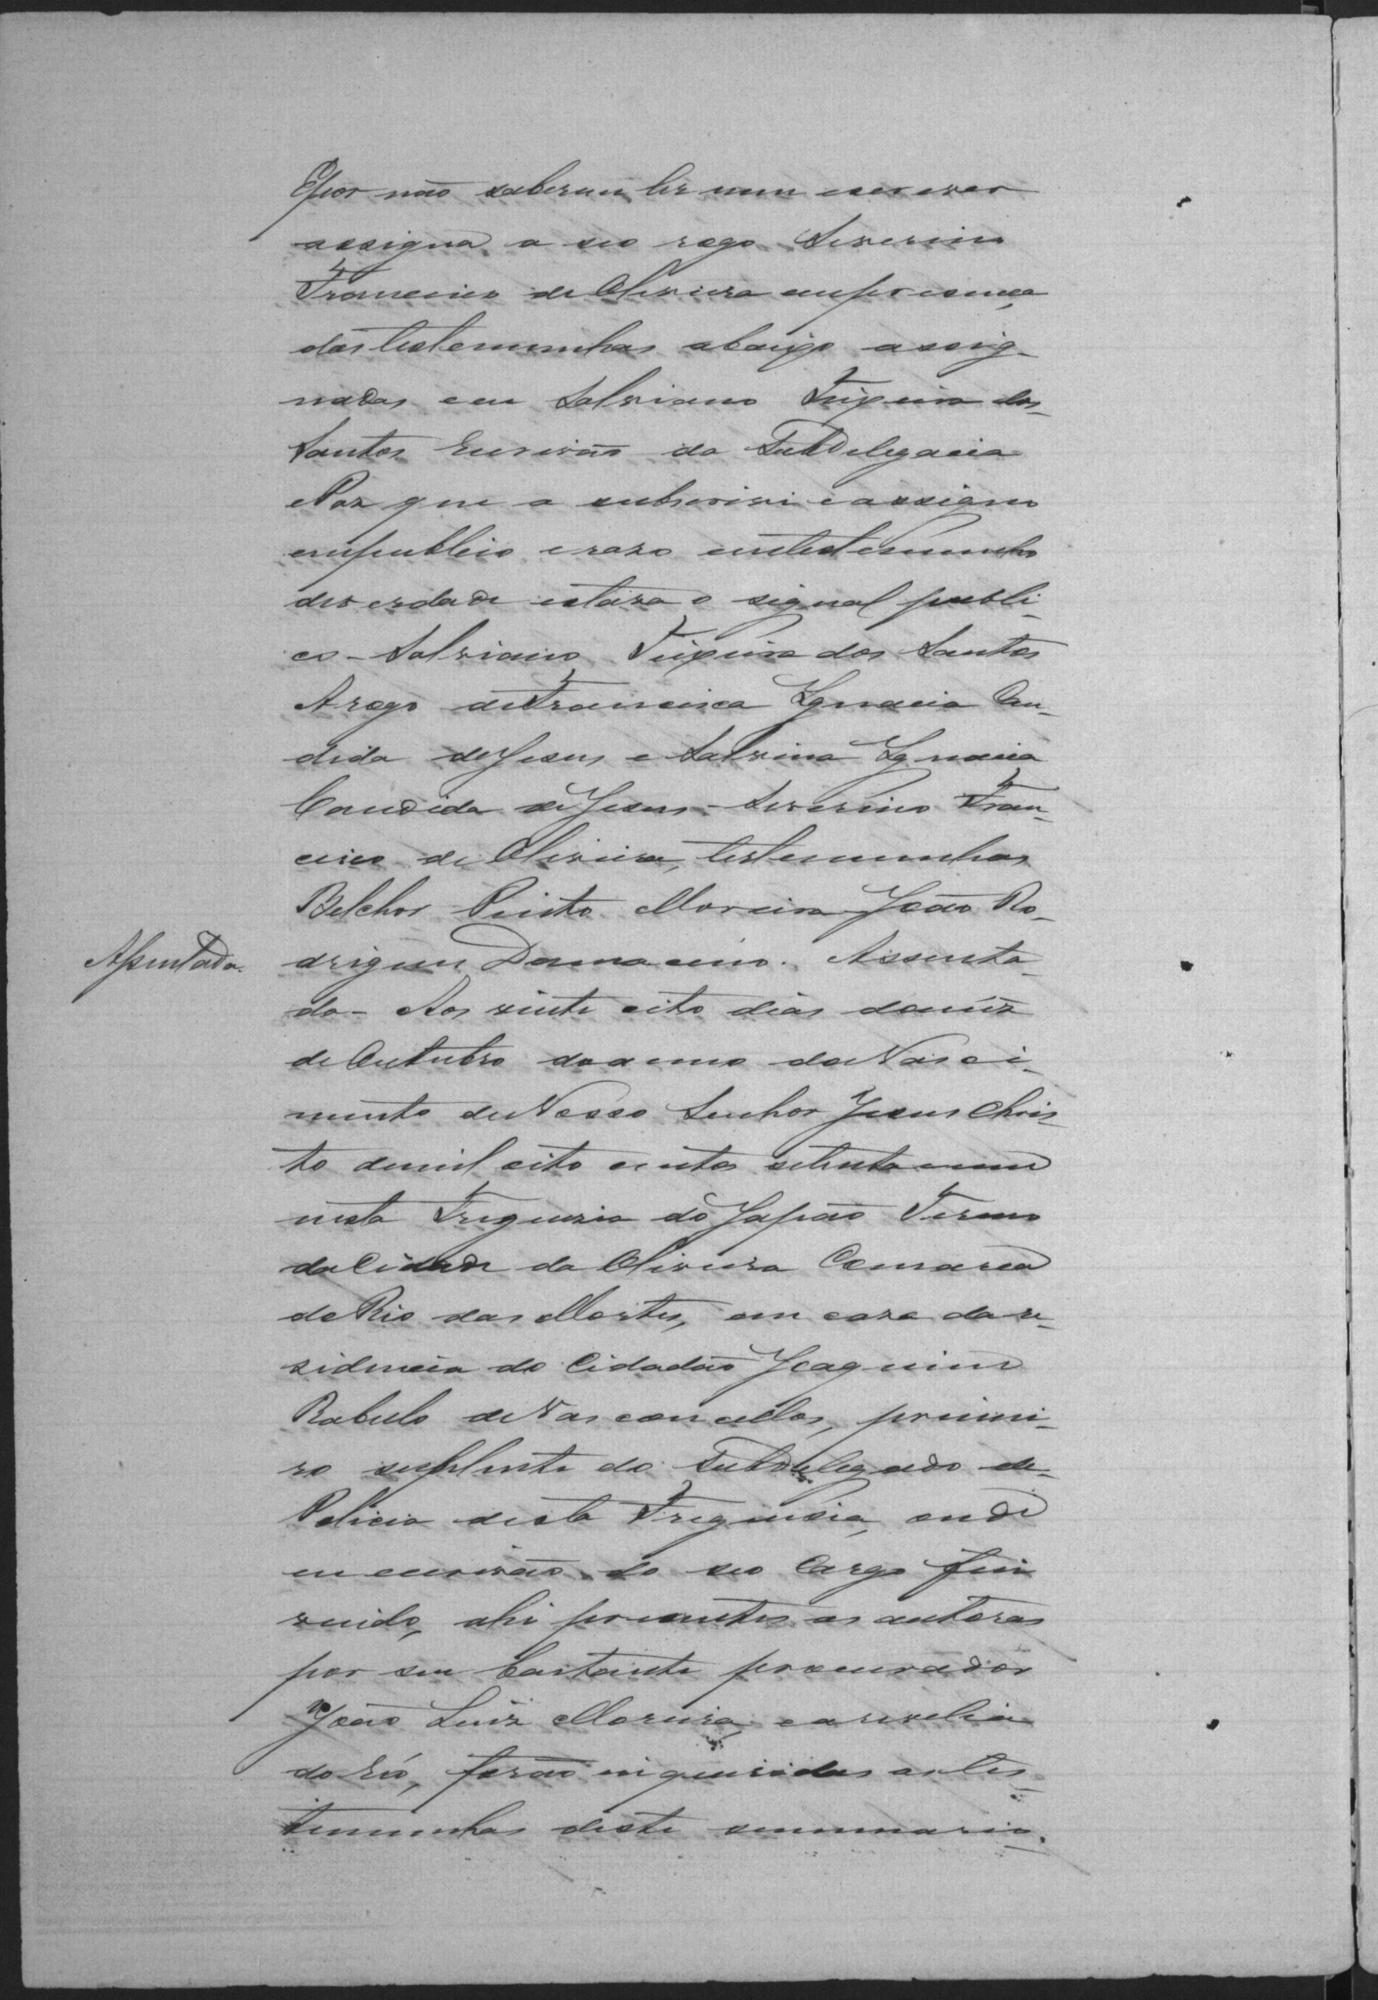 E por não saberem ler nem escrever
assigna a seo rogo Severino
Francisco de Oliveira em presença
das testemunhas abaixo assig-
nadas eu Salviano Teixeira dos
Santos Escrivão da Subdelegacia
e Paz que a subscrevi e assigno
em publico e razo em testemunho
de verdade estava o signal publi-
co - Salviano Teixeira dos Santos
A rogo de Francisca Ignacia Can-
dida de Jesus e Salvina Ignacia
Candida de Jesus - Severino Fran-
cisco de Oliveira, testemunhas
Belchor Pinto Moreira João Ro-
drigues Damaceno. Assenta-
Assentada.
da - Aos vinte oito dias do mez
de Outubro do anno do Nasci-
mento de Nosso Senhor Jesus Chris-
to de mil oito centos setenta e um
nesta Freguezia do Japão Termo
da Cidade da Oliveira Comarca
do Rio das Mortes, em caza da re-
zidencia do Cidadão Joaquim
Rabelo de Vasconcellos, primei-
ro suplente do Subdelegado de
Policia desta Freguezia, onde
eu escrivão do seo Cargo fui
vindo, ahi prezentes as autoras
por seu bastante procurador
João Luiz Moreira, e a revelia
do Réo, forão inqueridas as tes-
temunhas deste summario.